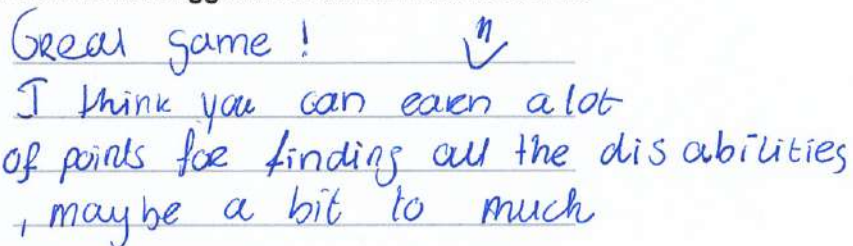 Great game !
I think you can earn a lot
of points for finding all the disabilities
, maybe a bit to much